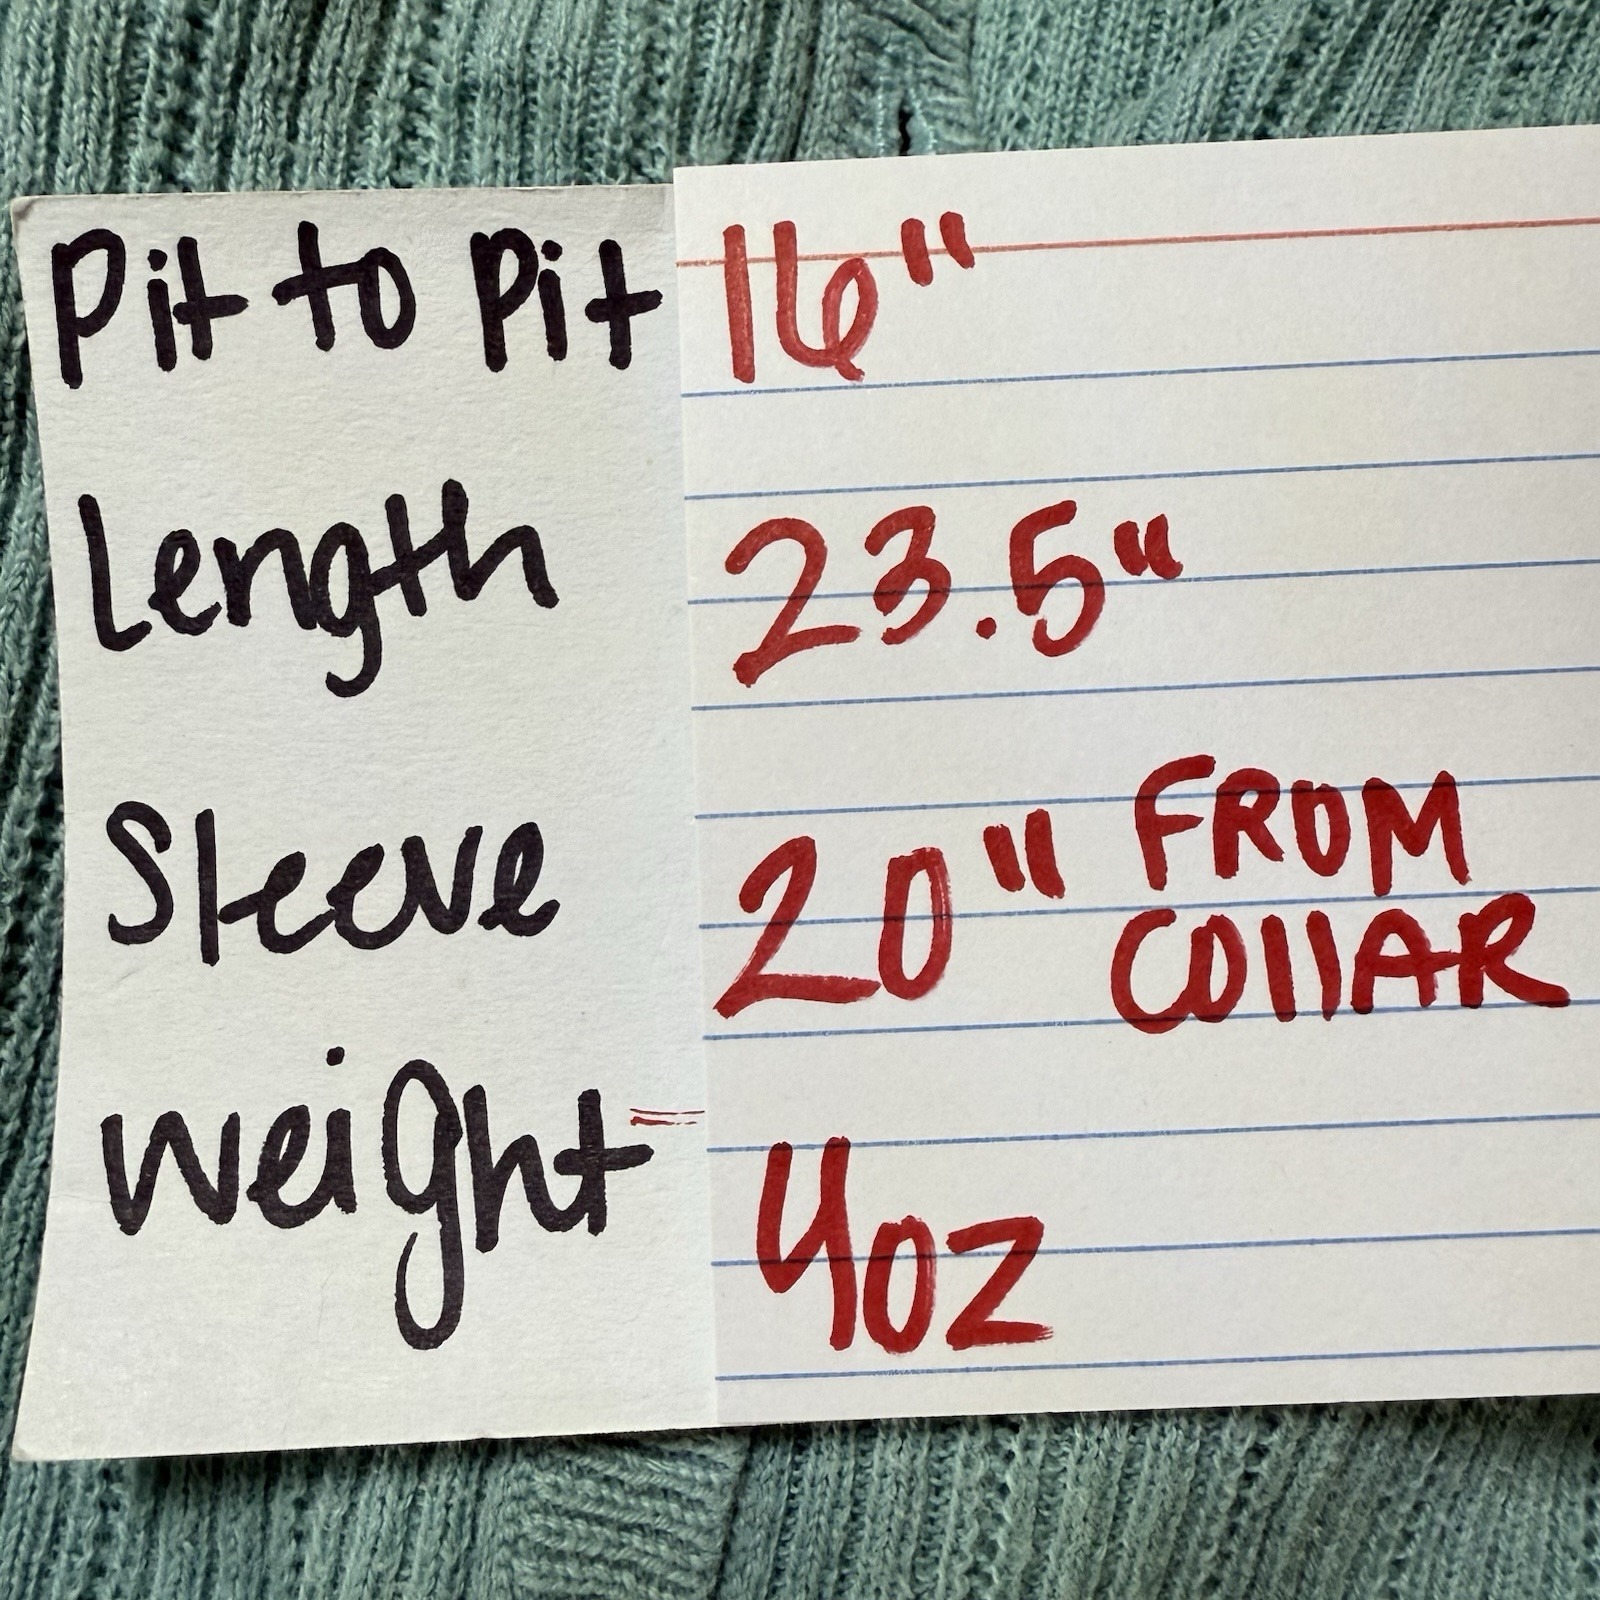 Pit to Pit 16"
Length 23.5"
Sleeve 20" FROM
COllAR
weight 4oz